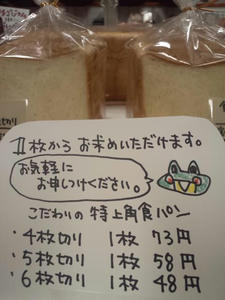 1枚から お求めいただけます。
お気軽に
お申しつけください。
こだわりの 特上角食パン
・4枚切り 1枚 73円
・5枚切り 1枚 58円
・6枚切り 1枚 48円